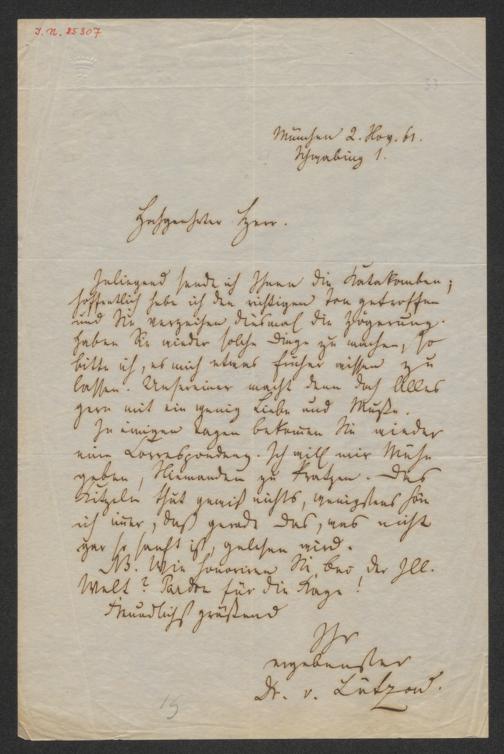 J. N. 25307
33
München 2. Nov. 61.
Schwabing 1.
Hochgeehrter Herr.
Inliegend sende ich Ihnen die Katakomben;
hoffentlich habe ich den richtigen Ton getroffen
und Sie verzeihen diesmal die Zögerung.
Haben Sie wieder solche Dinge zu machen, so
bitte ich, es mich etwas früher wissen zu
lassen. Unsereiner macht denn doch Alles
gern mit ein wenig Liebe und Muße.
In einigen Tagen bekommen Sie wieder
eine Correspondenz. Ich will mir Mühe
geben, Niemanden zu kratzen. Das
Kitzeln thut gewiß nichts, wenigstens
ich immer, daß gerade das, was nicht
gar so sanft ist, gelesen wird.
NB. Wie honoriren Sie bei der Ill.
Welt? Pardon für die Frage!
Freundlichst grüßend
Ihr
ergebenster
Dr. v. Lützow.